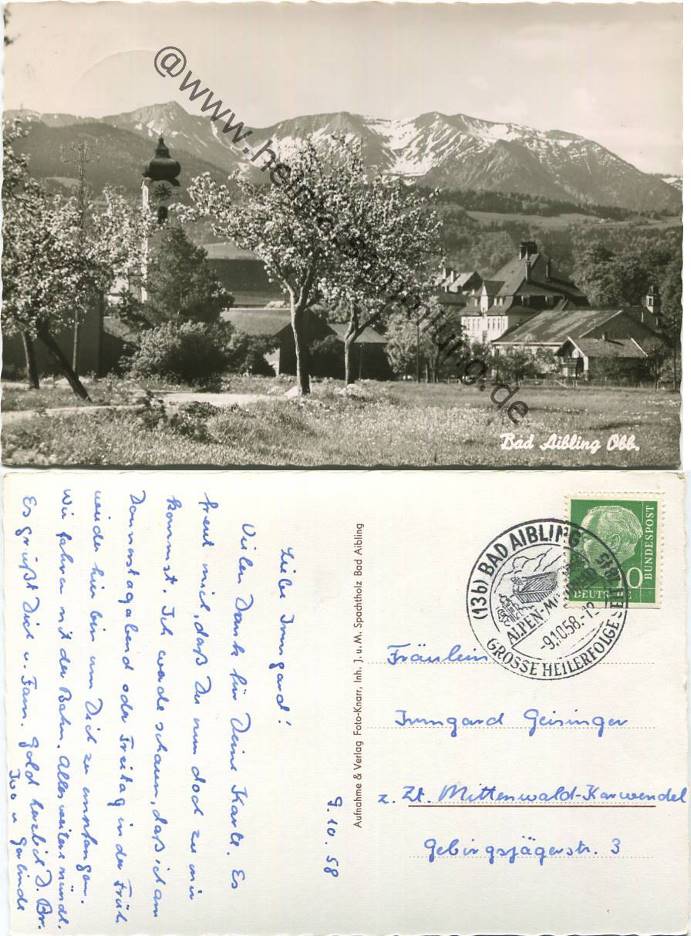 @www.heimatsammlung.de
Bad Aibling Obb.
9.10.58
Liebe Irmgard!
Vielen Dank für Deine Karte. Es
freut mich, daß Du nun doch zu mir
kommst. Ich werde schaun, daß ich am
Donnerstagabend oder Freitag in der Früh
wieder hier bin um Dich zu empfangen.
Wir fahren mit der Bahn. Alles weitere mündl.
Es grüßt Dich u. Fam. Gold herzlich D. Br.
Ivo u Gerlinde
Aufnahme & Verlag Foto-Knarr, Inh. J. u. M. Spachtholz Bad Aibling
(13b) BAD AIBLING
ALPEN-MOOR
-9.10.58.-12
GROSSE HEILERFOLGE SEIT
DEUTSCHE
BUNDESPOST
10
Fräulein
Irmgard Geisinger
z. Zt. Mittenwald-Karwendel
Gebirgsjägerstr. 3